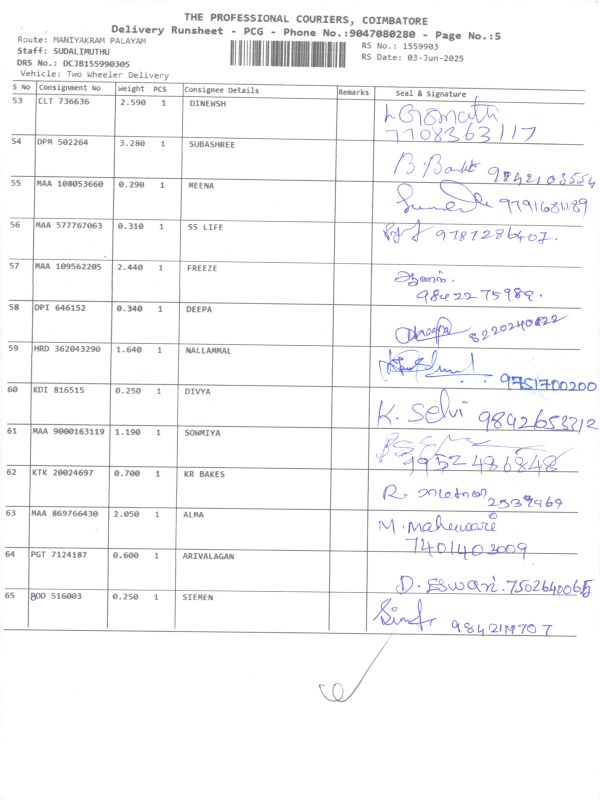 THE PROFESSIONAL COURIERS, COIMBATORE
Delivery Runsheet - PCG - Phone No.:9047080280 - Page No.:5
Route: MANIYAKRAM PALAYAM
RS No.: 1559903
Staff: SUDALIMUTHU
RS Date: 03-Jun-2025
DRS No.: DCJB155990305
Vehicle: Two Wheeler Delivery
S No Consignment No Weight PCS Consignee Details Remarks Seal & Signature
53 CLT 736636 2.590 1 DINEWSH L. Gomathi
7708363117
54 DPM 502264 3.280 1 SUBASHREE
B. 9842103554
55 MAA 108053660 0.290 1 MEENA 9791681189
56 MAA 577767063 0.310 1 SS LIFE 9787286407.
57 MAA 109562205 2.440 1 FREEZE
9842275989.
58 DPI 646152 0.340 1 DEEPA Deepa 8220240822
59 HRD 362043290 1.640 1 NALLAMMAL
9751700200
60 KDI 816515 0.250 1 DIVYA K. Selvi 9842653312
61 MAA 9000163119 1.190 1 SOWMIYA
9952486848
62 KTK 20024697 0.700 1 KR BAKES R. 2539969
63 MAA 869766430 2.050 1 ALMA M. Maheswari
7401403009
64 PGT 7124187 0.600 1 ARIVALAGAN
D. Eswari. 7502640065
65 BOD 516003 0.250 1 SIEMEN